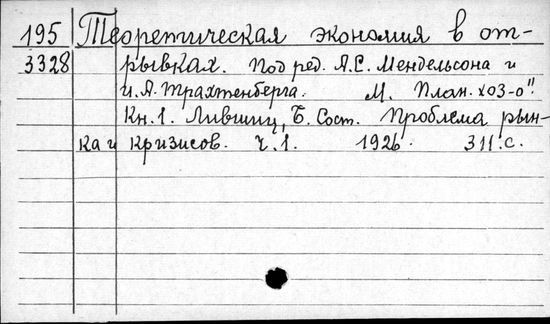 195 Теоретическая экономия в от-
3328 рывках. Под ред. А.С. Мендельсона и
И.А. Трахтенберга. М. "План. хоз-о"
Кн. 1. Лившиц, Б. Сост. Проблема рын-
ка и кризисов. Ч.1. 1926. 311 с.